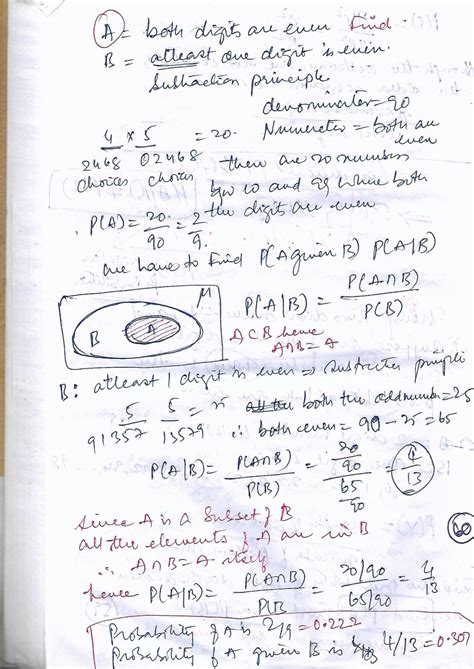 A = both digits are even Find
B = atleast one digit is even.
Subtraction principle
denominator = 90
4 x 5 = 20. Numerator = both are even
2468 02468 there are 20 numbers
choices choices b/w 10 and 99 where both
P(A) = 20/90 = 2/9. the digits are even
we have to find P(A given B) P(A|B)
μ
B A
P(A|B) = P(A∩B)/P(B)
A⊂B hence
A∩B = A
B: atleast 1 digit is even ⇒ principle
5 5 = 25 both the odd number = 25
91357 13579 ∴ both even = 90 - 25 = 65
P(A|B) = P(A∩B)/P(B) = 20/90 / 65/90 = 4/13
Since A is a Subset of B
all the elements of A are in B
60
∴ A∩B = A itself
hence P(A|B) = P(A∩B)/P(B = 20/90 / 65/90 = 4/13
Probability of A is 2/9 = 0.222
Probability of A given B is 4/13 = 0.307